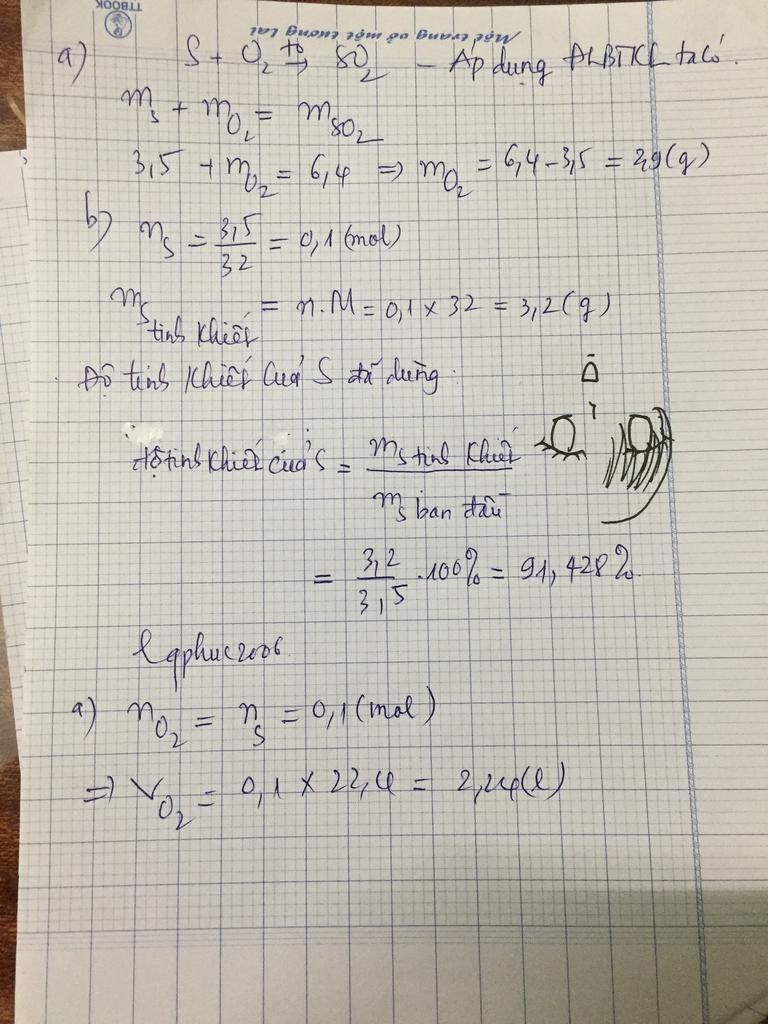 TTBOOK
Một trang vở một tương lai
a) S + O₂ t° → SO₂ - Áp dụng ĐLBTKL ta có.
mₛ + m_O₂ = m_SO₂
3,5 + m_O₂ = 6,4 => m_O₂ = 6,4 - 3,5 = 2,9(g)
b) nₛ = 3,5/32 = 0,1 (mol)
mₛ tinh khiết = n.M = 0,1 x 32 = 3,2(g)
Độ tinh khiết của S đã dùng.
độ tinh khiết của S = mₛ tinh khiết / mₛ ban đầu
= 3,2/3,5 . 100% = 91,428%.
lqphuc2006
a) n_O₂ = nₛ = 0,1 (mol)
=> V_O₂ = 0,1 x 22,4 = 2,24(l)